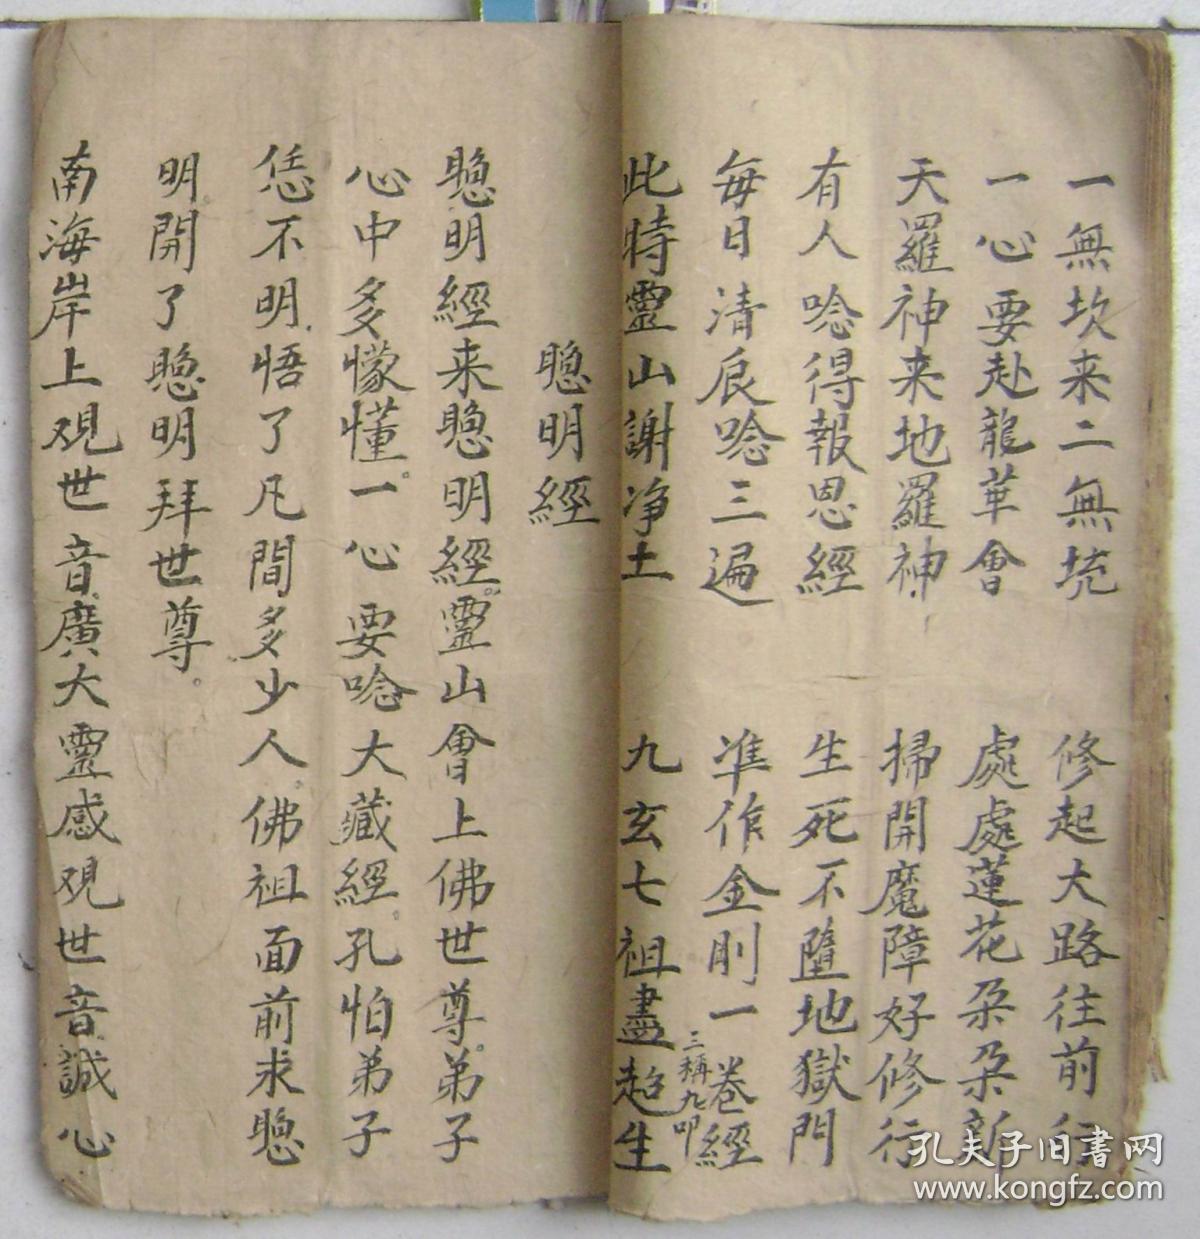 一無坎来二無坑　修起大路往前行
一心要赴龍華會　處處蓮花朶朶新
天羅神来地羅神　掃開魔障好修行
有人唸得報恩經　生死不墮地獄門
每日清晨唸三遍　準作金剛一卷經
三稱九叩
此時靈山謝净土　九玄七祖盡超生
聰明經
聰明經来聰明經。靈山會上佛世尊。弟子
心中多懞懂。一心要唸大藏經。孔怕弟子
恁不明。悟了凡間多少人。佛祖面前求聰
明。開了聰明拜世尊。
南海岸上观世音。廣大靈感观世音。誠心
孔夫子旧书网
www.kongfz.com